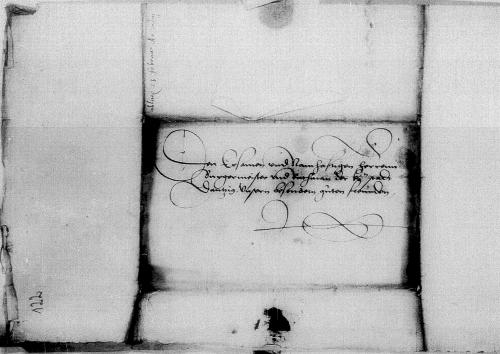 Den Ersamen und Namhafftigen Herren
Burgermeister und Rathman der
Dantzig Unsern besondern guten freunden
122